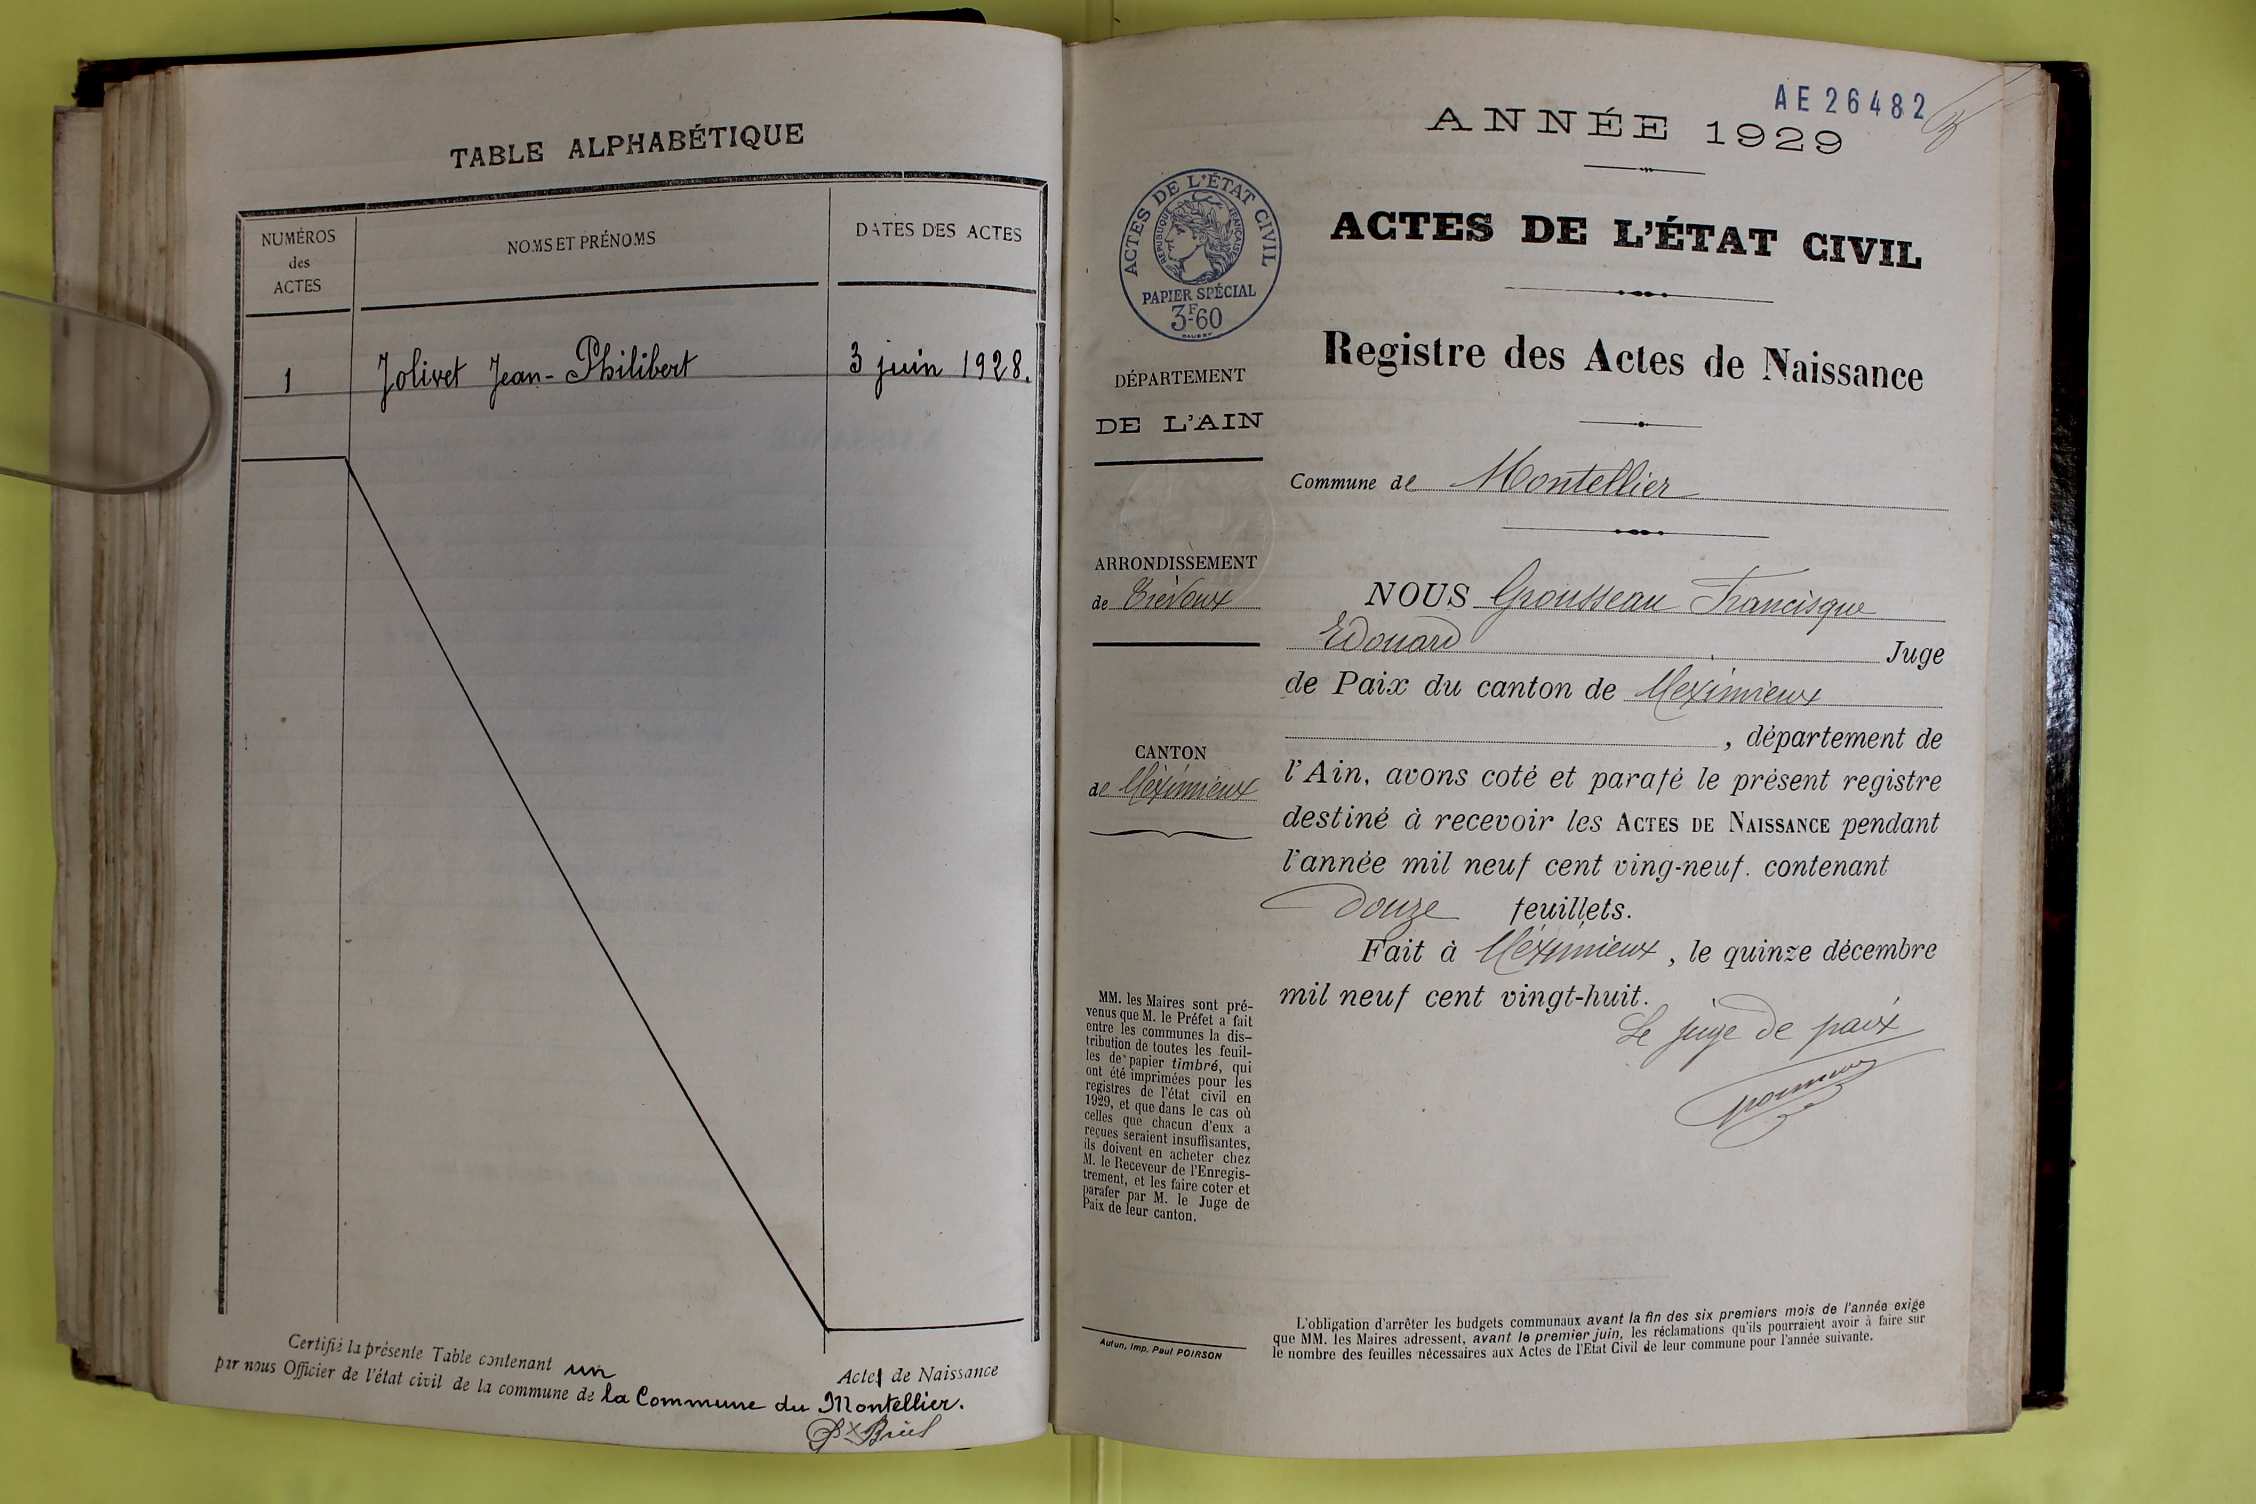 TABLE ALPHABÉTIQUE
NUMÉROS
des
ACTES
NOMS ET PRÉNOMS
DATES DES ACTES
1 Jolivet Jean-Philibert 3 juin 1928.
Certifié la présente Table contenant un Actes de Naissance
par nous Officier de l'état civil de la commune de la Commune du Montellier.
AE 26482
ANNÉE 1929
ACTES DE L'ÉTAT CIVIL
RÉPUBLIQUE FRANÇAISE
PAPIER SPÉCIAL
3F60
ACTES DE L'ÉTAT CIVIL
Registre des Actes de Naissance
DÉPARTEMENT
DE L'AIN
Commune de Montellier
ARRONDISSEMENT
de Trévoux
CANTON
de Méximieux
NOUS Grousseau Francisque
Edouard Juge
de Paix du canton de Meximieux
, département de
l'Ain, avons coté et parafé le présent registre
destiné à recevoir les ACTES DE NAISSANCE pendant
l'année mil neuf cent ving-neuf. contenant
Douze feuillets.
Fait à Méximieux, le quinze décembre
mil neuf cent vingt-huit.
Le juge de paix
MM. les Maires sont pré-
venus que M. le Préfet a fait
entre les communes la dis-
tribution de toutes les feuil-
les de papier timbré, qui
ont été imprimées pour les
registres de l'état civil en
1929, et que dans le cas où
celles que chacun d'eux a
reçues seraient insuffisantes,
ils doivent en acheter chez
M. le Receveur de l'Enregis-
trement, et les faire coter et
parafer par M. le Juge de
Paix de leur canton.
Autun, Imp. Paul POIRSON
L'obligation d'arrêter les budgets communaux avant la fin des six premiers mois de l'année exige
que MM. les Maires adressent, avant le premier juin, les réclamations qu'ils pourraient avoir à faire sur
le nombre des feuilles nécessaires aux Actes de l'Etat Civil de leur commune pour l'année suivante.